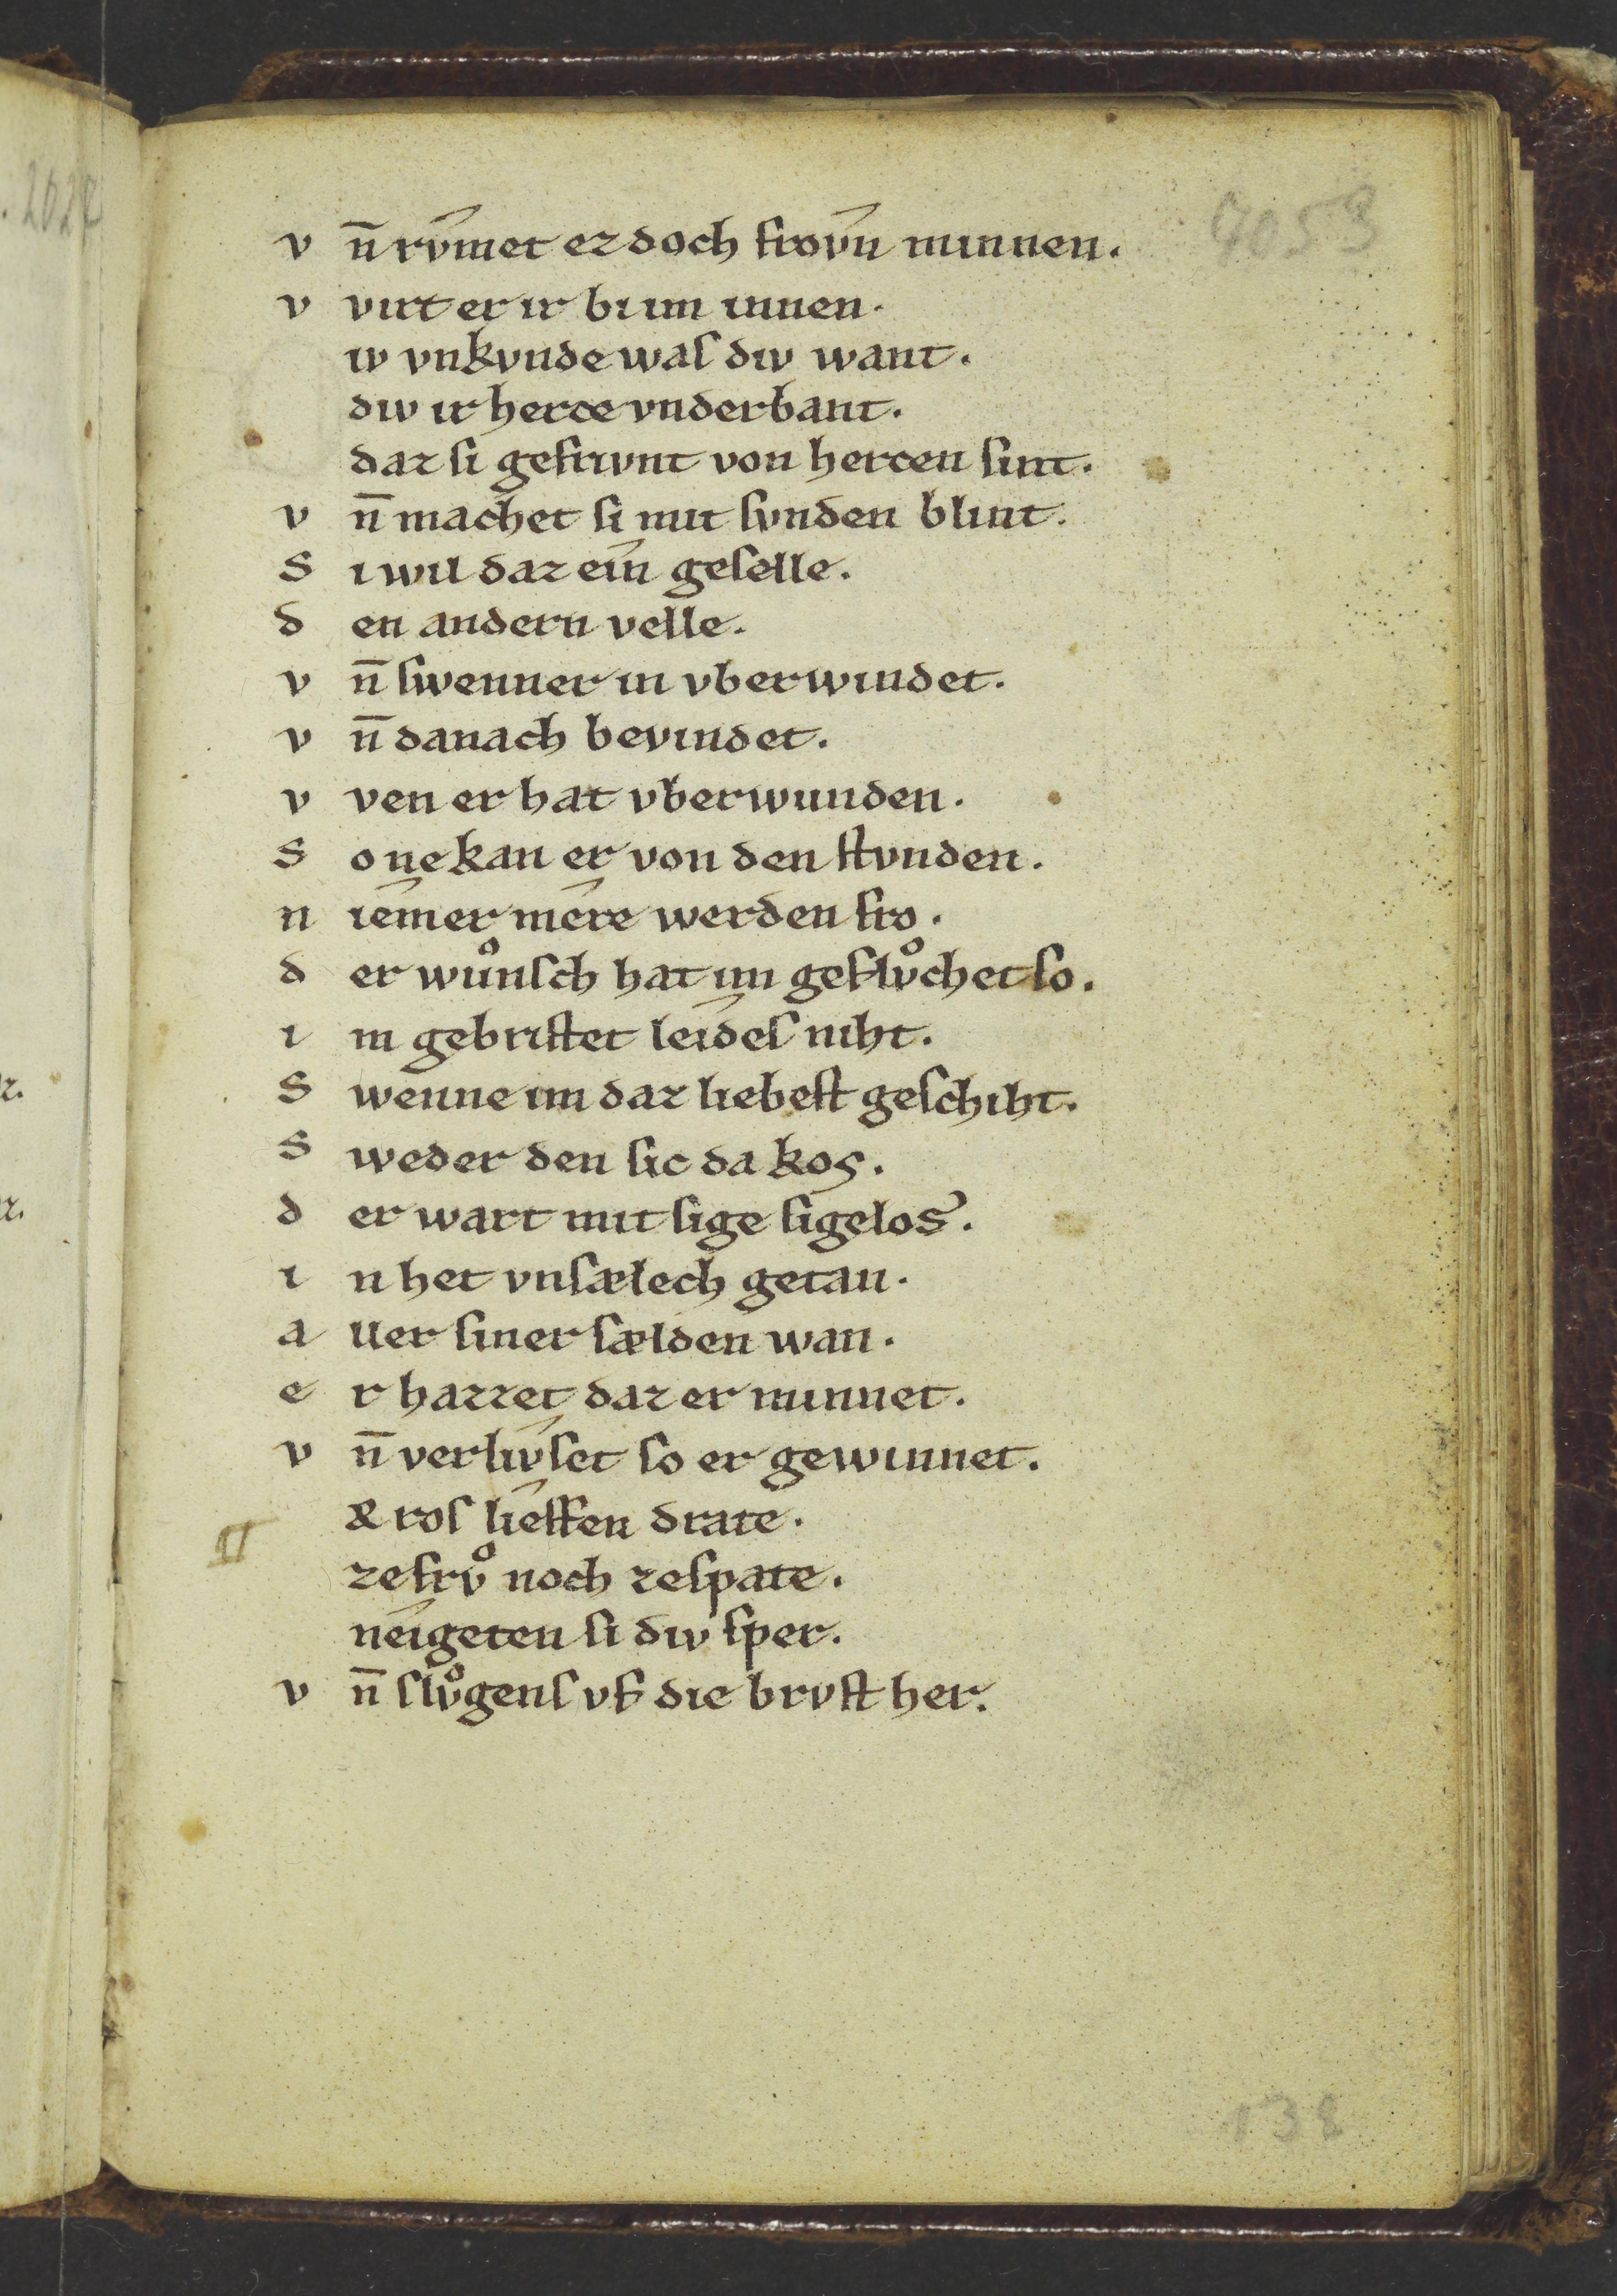 7053
v n̄ rv́met ez doch frov́n minnen.
v virt er ir bi im innen.
iv vnkvnde was div want.
div ir herce vnderbant.
daz si gefrivnt von hercen sint.
v n̄ machet si mit svnden blint.
S i wil daz eín geselle.
d en andern velle.
v n̄ swenner in vberwindet.
v n̄ danach bevindet.
v ven er hat vberwunden.
S o nekan er von den stvnden.
n iémer mére werden fro.
d er wuͦnsch hat im geflvͦchet so.
i m gebristet leídes niht.
S wenne im daz liebest geschiht.
S weder den sic da kos.
d er wart mit sige sigelos.
i n het vnsælech getan.
a ller siner sælden wan.
e r hazzet daz er minnet.
v n̄ verlív́set so er gewinnet.
& ros liéffen drate.
zefrvͦ noch zespate.
neígeten si div sper.
v n̄ slvͦgens vf die brvst her.
138